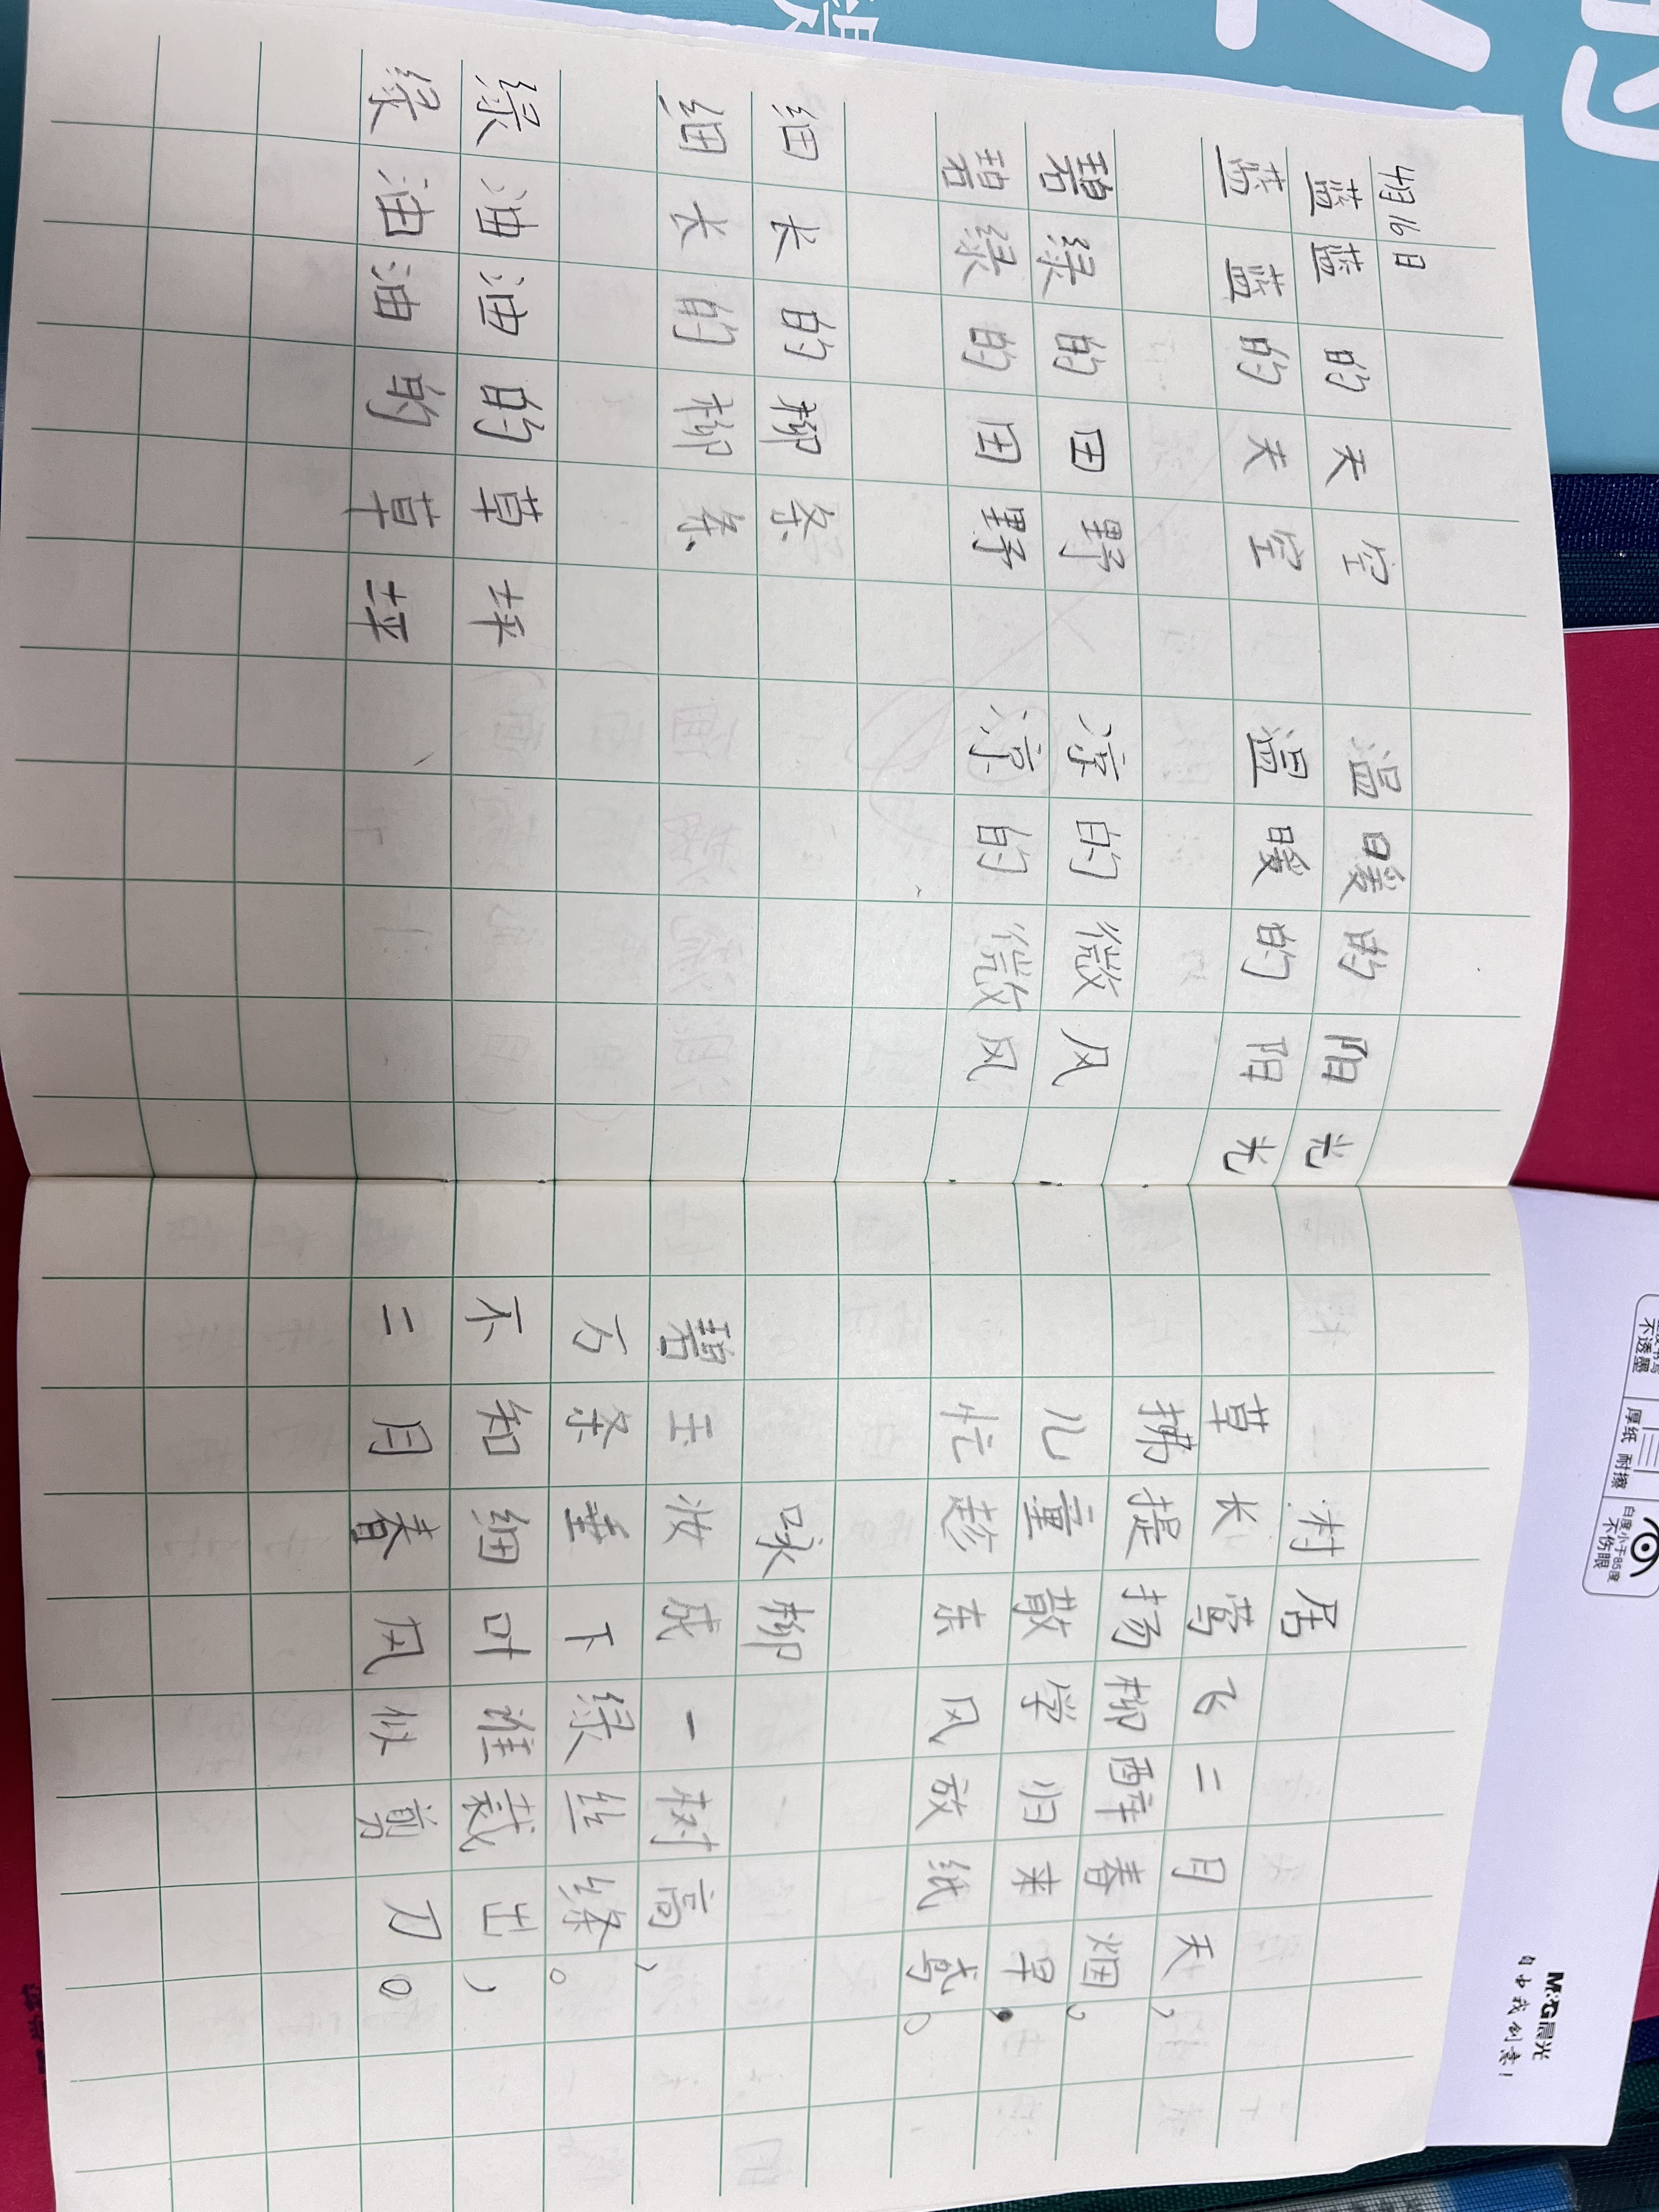 4月16日
蓝蓝的天空 温暖的阳光
蓝蓝的天空 温暖的阳光
碧绿的田野 凉的微风
碧绿的田野 凉的微风
细长的柳条
细长的柳条
绿油油的草坪
绿油油的草坪
村居
草长莺飞二月天，
拂提扬柳醉春烟，
儿童散学归来早，
忙趁东风放纸鸢。
咏柳
碧玉妆成一树高，
万条垂下绿丝绦。
不知细叶谁裁出，
二月春风似剪刀。
不透墨
厚纸 耐擦
白度小于85度
不伤眼
M&G晨光
自由我创意！